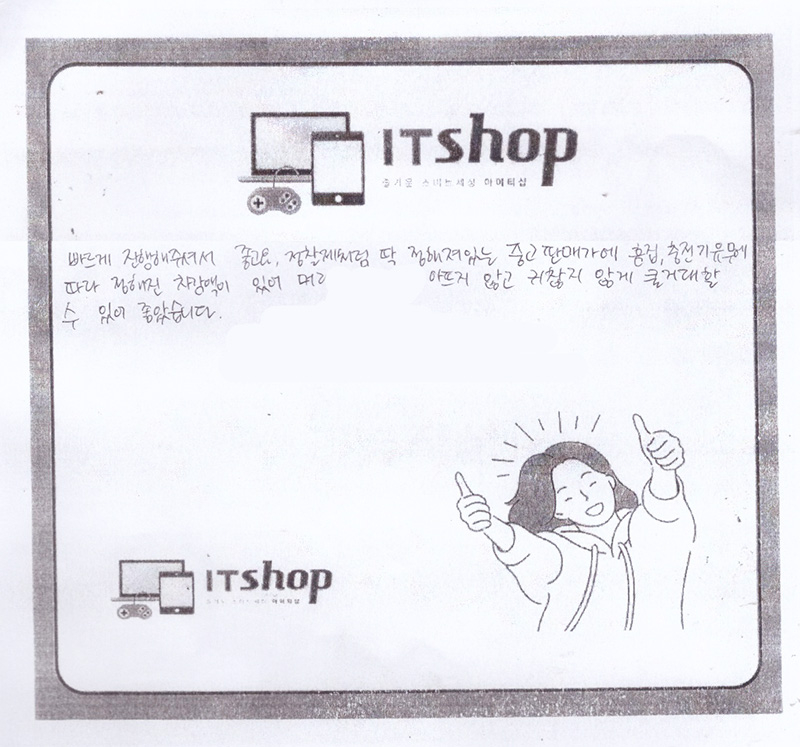 ITshop
즐거운 스마트세상 아이티샵
빠르게 진행해주셔서 좋고요, 정찰제처럼 딱 정해져있는 중고판매가에 흠집, 충전기유무에
따라 정해진 차감액이 있어 머리 아프지 않고 귀찮지 않게 쿨거래할
수 있어 좋았습니다.
ITshop
아이티샵